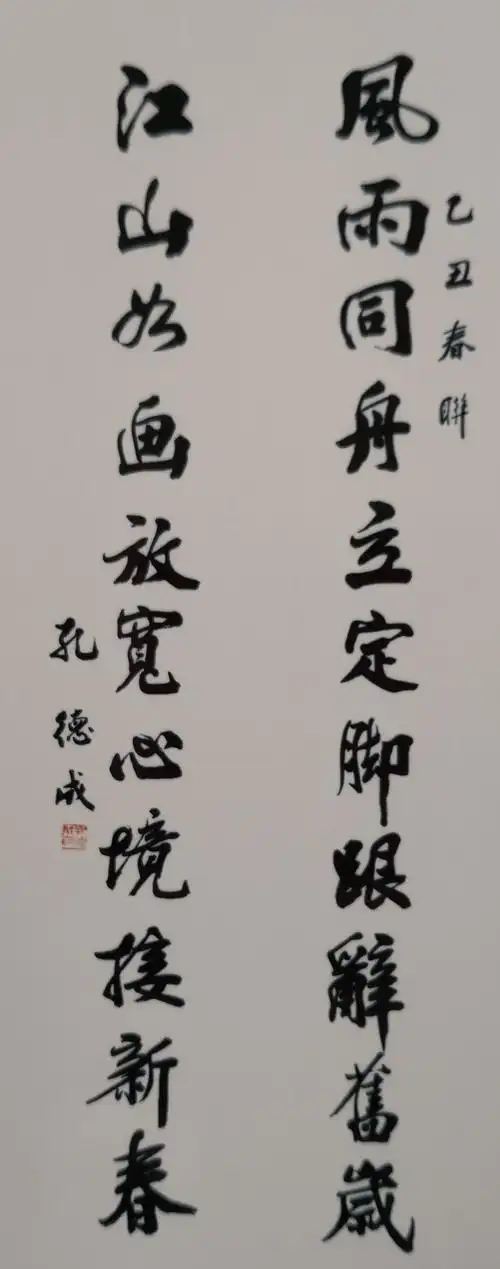 乙丑春聯
風雨同舟立定脚跟辭舊歲
江山如画放寬心境接新春
孔德成